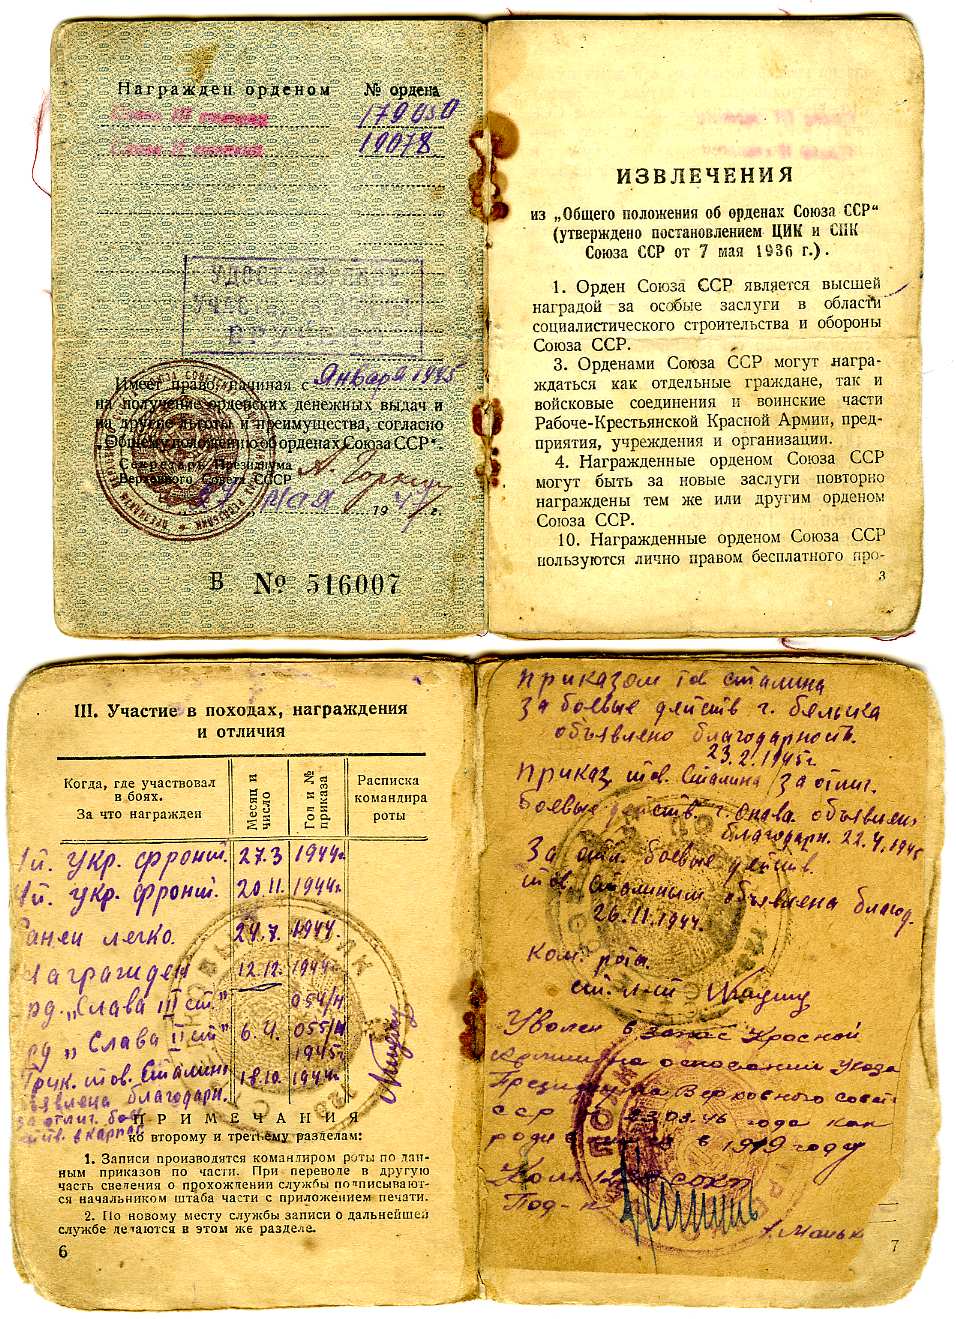 Награжден орденом № ордена
Слава III степени 179050
Слава II степени 19078
УДОСТОВЕРЕНИЕ
Имеет право, начиная с Января 1945
на получение орденских денежных выдач и
на другие льготы и преимущества, согласно
„Общему положению об орденах Союза ССР“.
Секретарь Президиума
Верховного Совета СССР А. Горкин
27 мая 1947 г.
Б № 516007
ИЗВЛЕЧЕНИЯ
из „Общего положения об орденах Союза ССР“
(утверждено постановлением ЦИК и СНК
Союза ССР от 7 мая 1936 г.).
1. Орден Союза ССР является высшей
наградой за особые заслуги в области
социалистического строительства и обороны
Союза ССР.
3. Орденами Союза ССР могут награ-
ждаться как отдельные граждане, так и
войсковые соединения и воинские части
Рабоче-Крестьянской Красной Армии, пред-
приятия, учреждения и организации.
4. Награжденные орденом Союза ССР
могут быть за новые заслуги повторно
награждены тем же или другим орденом
Союза ССР.
10. Награжденные орденом Союза ССР
пользуются лично правом бесплатного про-
3
III. Участие в походах, награждения
и отличия
Когда, где участвовал
в боях.
За что награжден
Месяц и
число
Год и №
приказа
Расписка
командира
роты
укр. фронт. 27.3 1944г.
укр. фронт. 20.11. 1944г.
Ранен легко. 24.7. 1944г.
Награжден 12.12. 1944г.
орд. „Слава III ст“ 054/н
орд „Слава II ст“ 6.4. 055/н
1945г
Прик. тов. Сталина 18.10. 1944г.
объявлена благодарн.
за отлич. боев
действ. в карпат
ПРИМЕЧАНИЯ
ко второму и третьему разделам:
1. Записи производятся командиром роты по дан-
ным приказов по части. При переводе в другую
часть сведения о прохождении службы подписывают-
ся начальником штаба части с приложением печати.
2. По новому месту службы записи о дальнейшей
службе делаются в этом же разделе.
6
приказом тов сталина
за боевые действ г. Бельска
объявлено благодарность.
23.2.1945г
приказ тов. Сталина за отлич.
боевые действ. г. объявлен
благодарн. 22.4.1945
За отл. боевые действ.
тов. Сталиным объявлена благод.
26.11.1944г.
Ком. роты
ст. л-нт
Уволен в запас Красной
Армии на основании Указа
Президиума Верховного совета
ссср от 23.03.46 года как
в 1919 году
Под-к
7